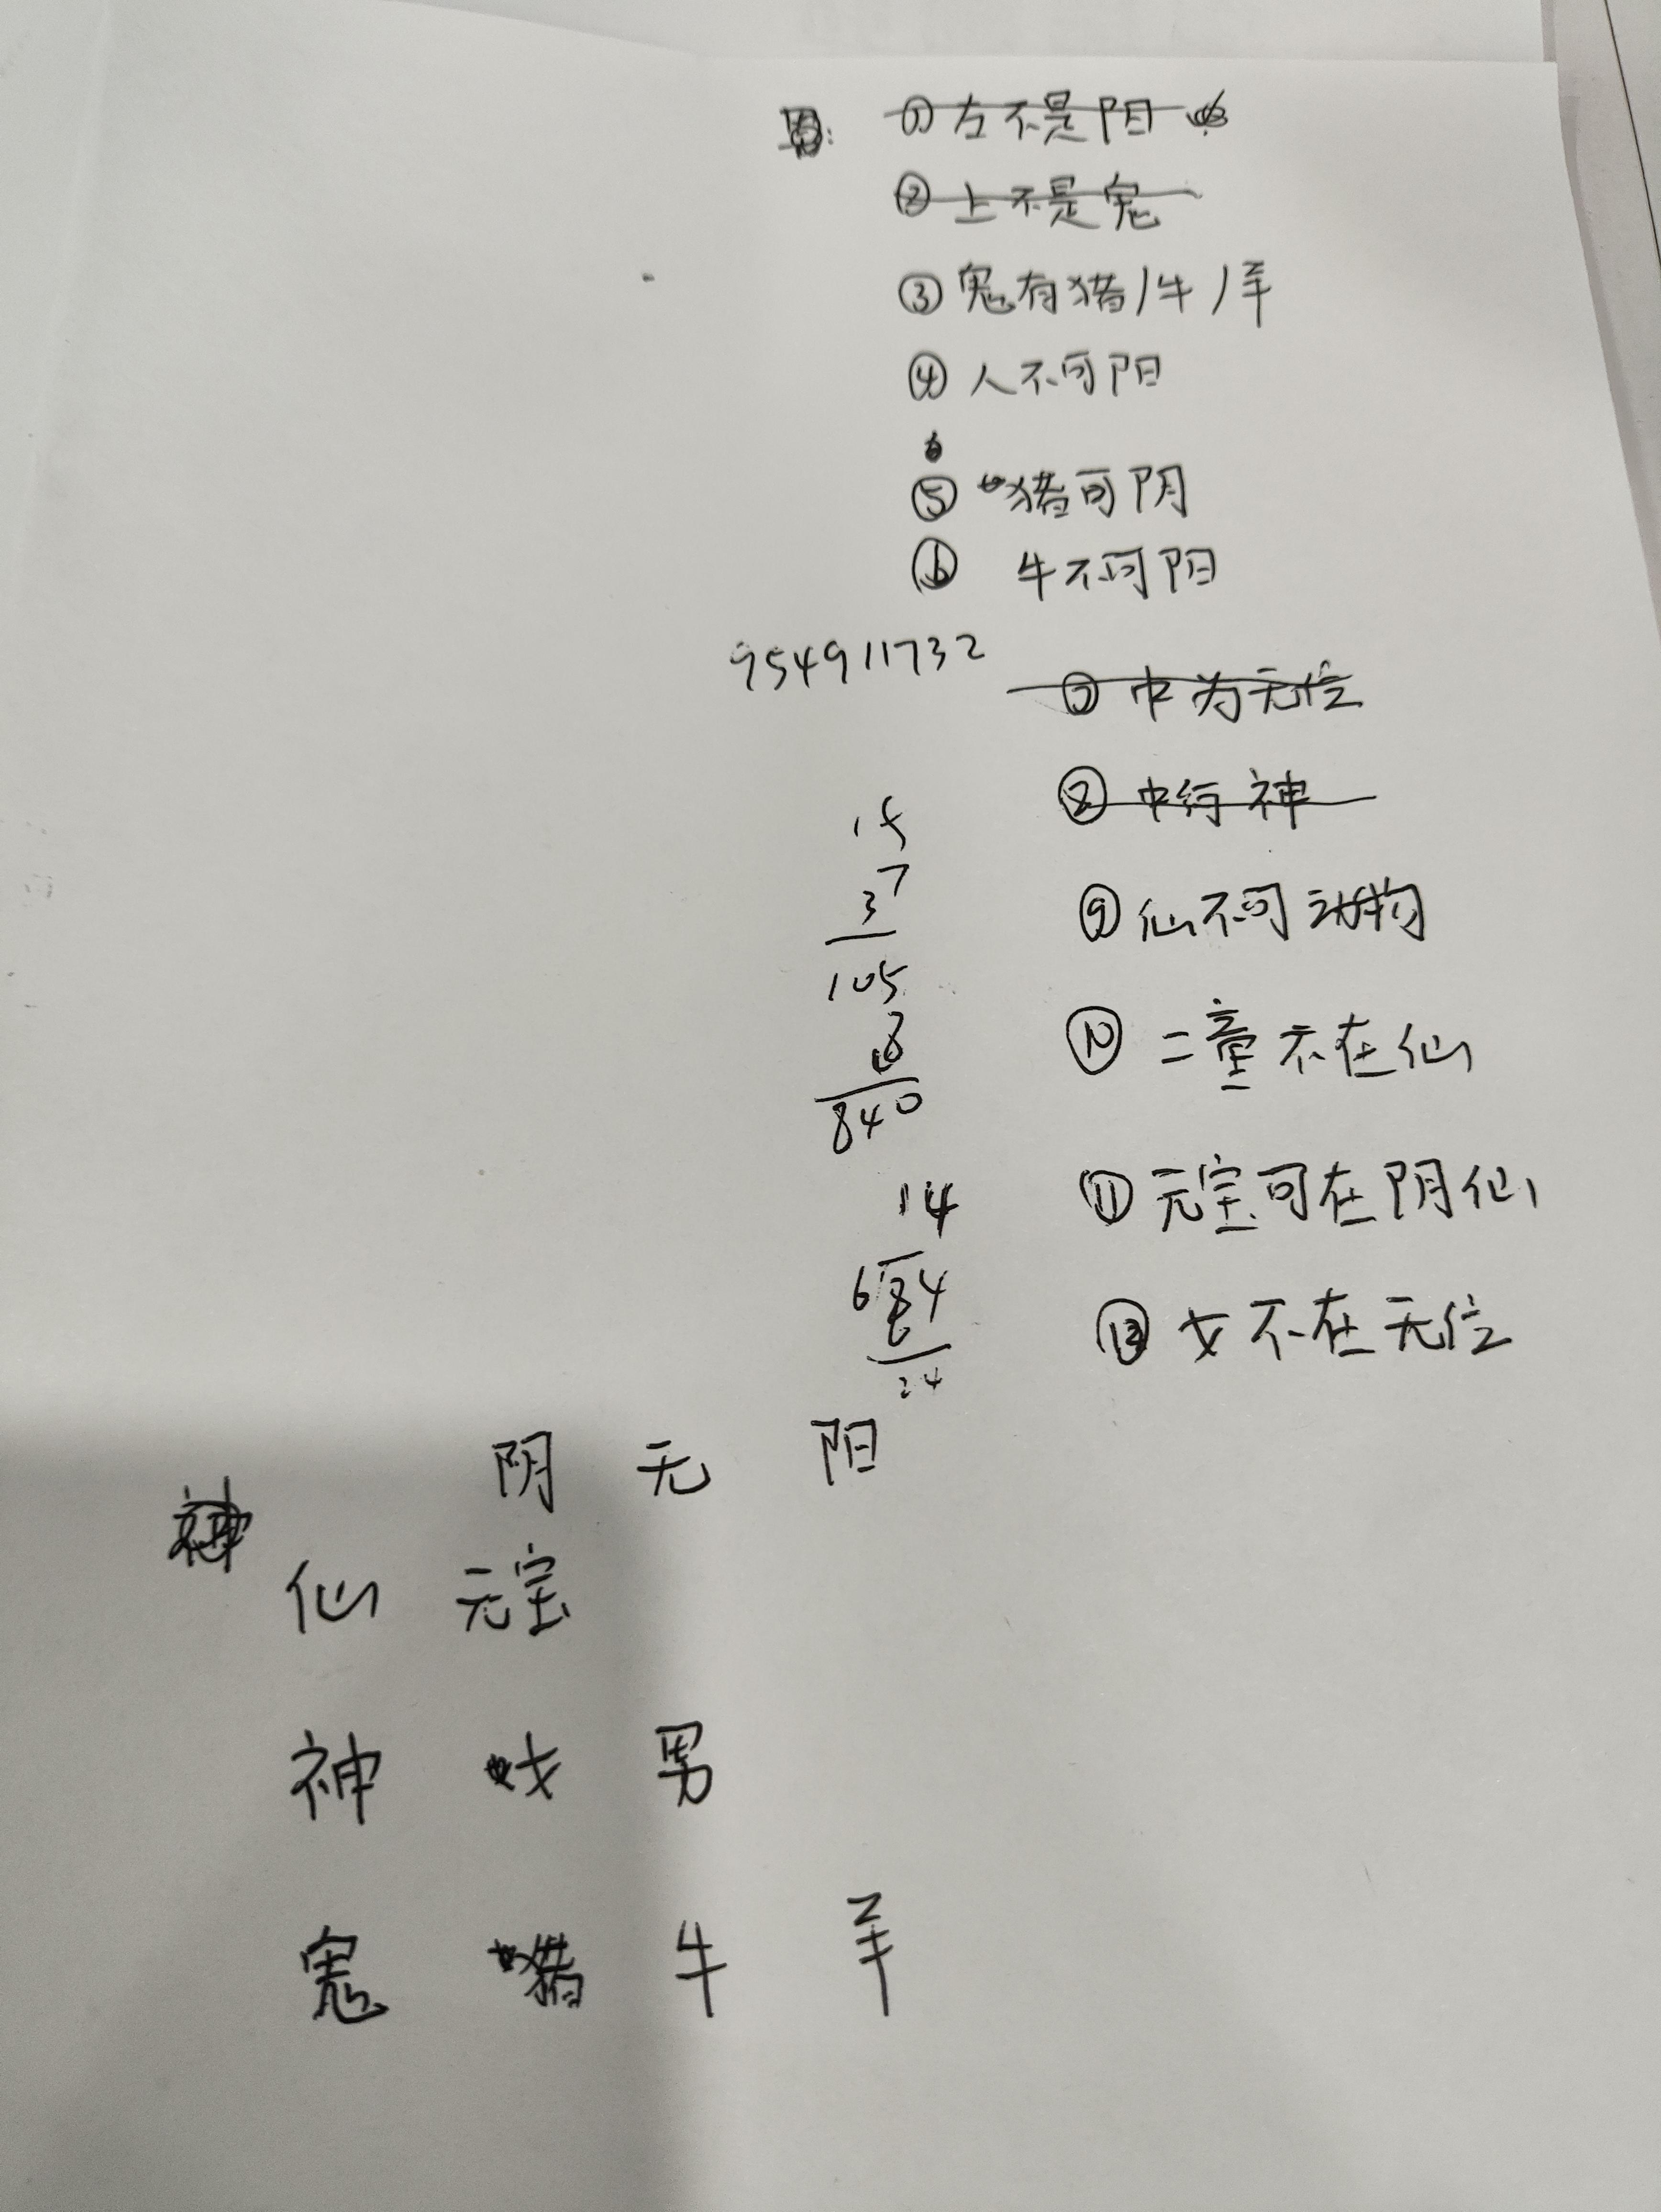 ① 左不是阳
② 上不是鬼
③ 鬼有猪/牛/羊
④ 人不可阳
⑤ 猪可阴
⑥ 牛不可阳
954911732
⑦ 中为无位
⑧ 中行神
⑨ 仙不可动物
⑩ 二童不在仙
⑪ 元宝可在阴仙
⑫ 女不在无位
15
37
105
8
840
14
6 84
6
24
阴 无 阳
仙 元宝
神 女 男
鬼 猪 牛 羊